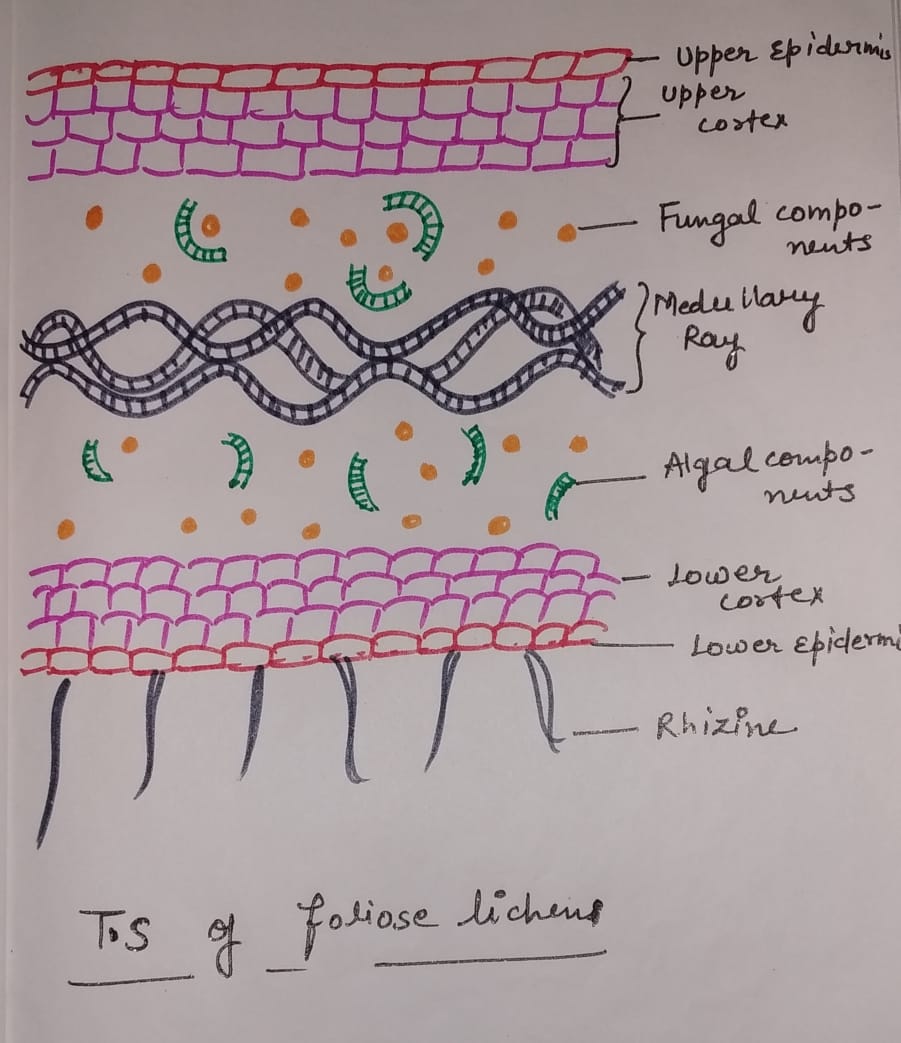 Upper Epidermis
Upper
cortex
Fungal compo-
nents
Medullary
Ray
Algal compo-
nents
Lower
cortex
Lower Epidermi
Rhizine
T.S of foliose lichens